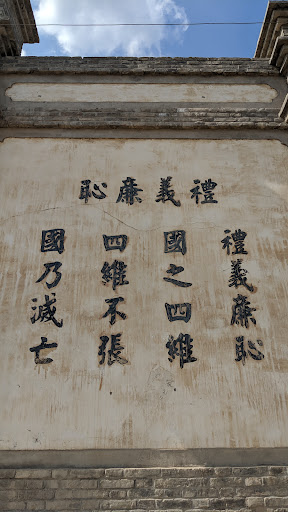 禮義廉恥
禮義廉恥
國之四維
四維不張
國乃滅亡